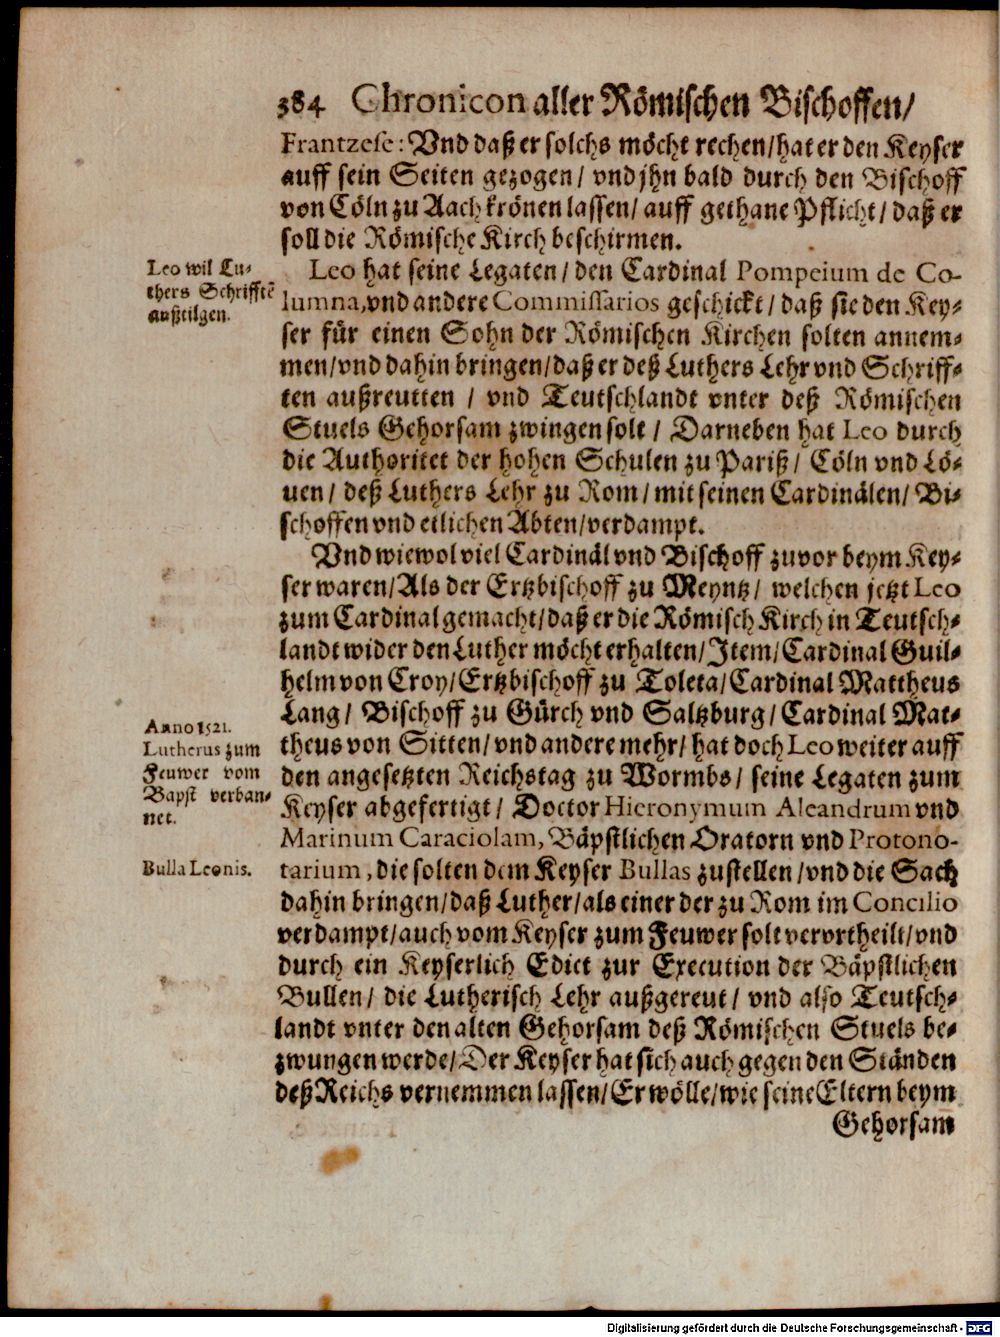 384 Chronicon aller Römischen Bischoffen/
Frantzese: Vnd daß er solchs möcht rechen/hat er den Keyser
auff sein Seiten gezogen/ vnd jhn bald durch den Bischoff
von Cöln zu Aach krönen lassen/ auff gethane Pflicht/ daß er
soll die Römische Kirch beschirmen.
Leo wil Lu-
thers Schrifftē
außtilgen.
Leo hat seine Legaten/ den Cardinal Pompeium de Co-
lumna, vnd andere Commissarios geschickt/ daß sie den Key-
ser für einen Sohn der Römischen Kirchen solten annem-
men/vnd dahin bringen/daß er deß Luthers Lehr vnd Schriff-
ten außreutten / vnd Teutschlandt vnter deß Römischen
Stuels Gehorsam zwingen solt/ Darneben hat Leo durch
die Authoritet der hohen Schulen zu Pariß/ Cöln vnd Lö-
uen/ deß Luthers Lehr zu Rom/ mit seinen Cardinälen/ Bi-
schoffen vnd etlichen Äbten/verdampt.
Vnd wiewol viel Cardinäl vnd Bischoff zuvor beym Key-
ser waren/Als der Ertzbischoff zu Meyntz/ welchen jetzt Leo
zum Cardinal gemacht/daß er die Römisch Kirch in Teutsch-
landt wider den Luther möcht erhalten/Item/Cardinal Guil-
helm von Croy/Ertzbischoff zu Toleta/Cardinal Mattheus
Lang/ Bischoff zu Gürch vnd Saltzburg/ Cardinal Mat-
Anno 1521.
Lutherus zum
Feuwer vom
Bapst verban-
net.
theus von Sitten/ vnd andere mehr/ hat doch Leo weiter auff
den angesetzten Reichstag zu Wormbs/ seine Legaten zum
Keyser abgefertigt/ Doctor Hieronymum Aleandrum vnd
Marinum Caraciolam, Bäpstlichen Oratorn vnd Protono-
Bulla Leonis.
tarium, die solten dem Keyser Bullas zustellen /vnd die Sach
dahin bringen/daß Luther/als einer der zu Rom im Concilio
verdampt/auch vom Keyser zum Feuwer solt verurtheilt/vnd
durch ein Keyserlich Edict zur Execution der Bäpstlichen
Bullen/ die Lutherisch Lehr außgereut/ vnd also Teutsch-
landt vnter den alten Gehorsam deß Römischen Stuels be-
zwungen werde/Der Keyser hat sich auch gegen den Ständen
deß Reichs vernemmen lassen/Er wölle/wie seine Eltern beym
Gehorsam
Digitalisierung gefördert durch die Deutsche Forschungsgemeinschaft - DFG